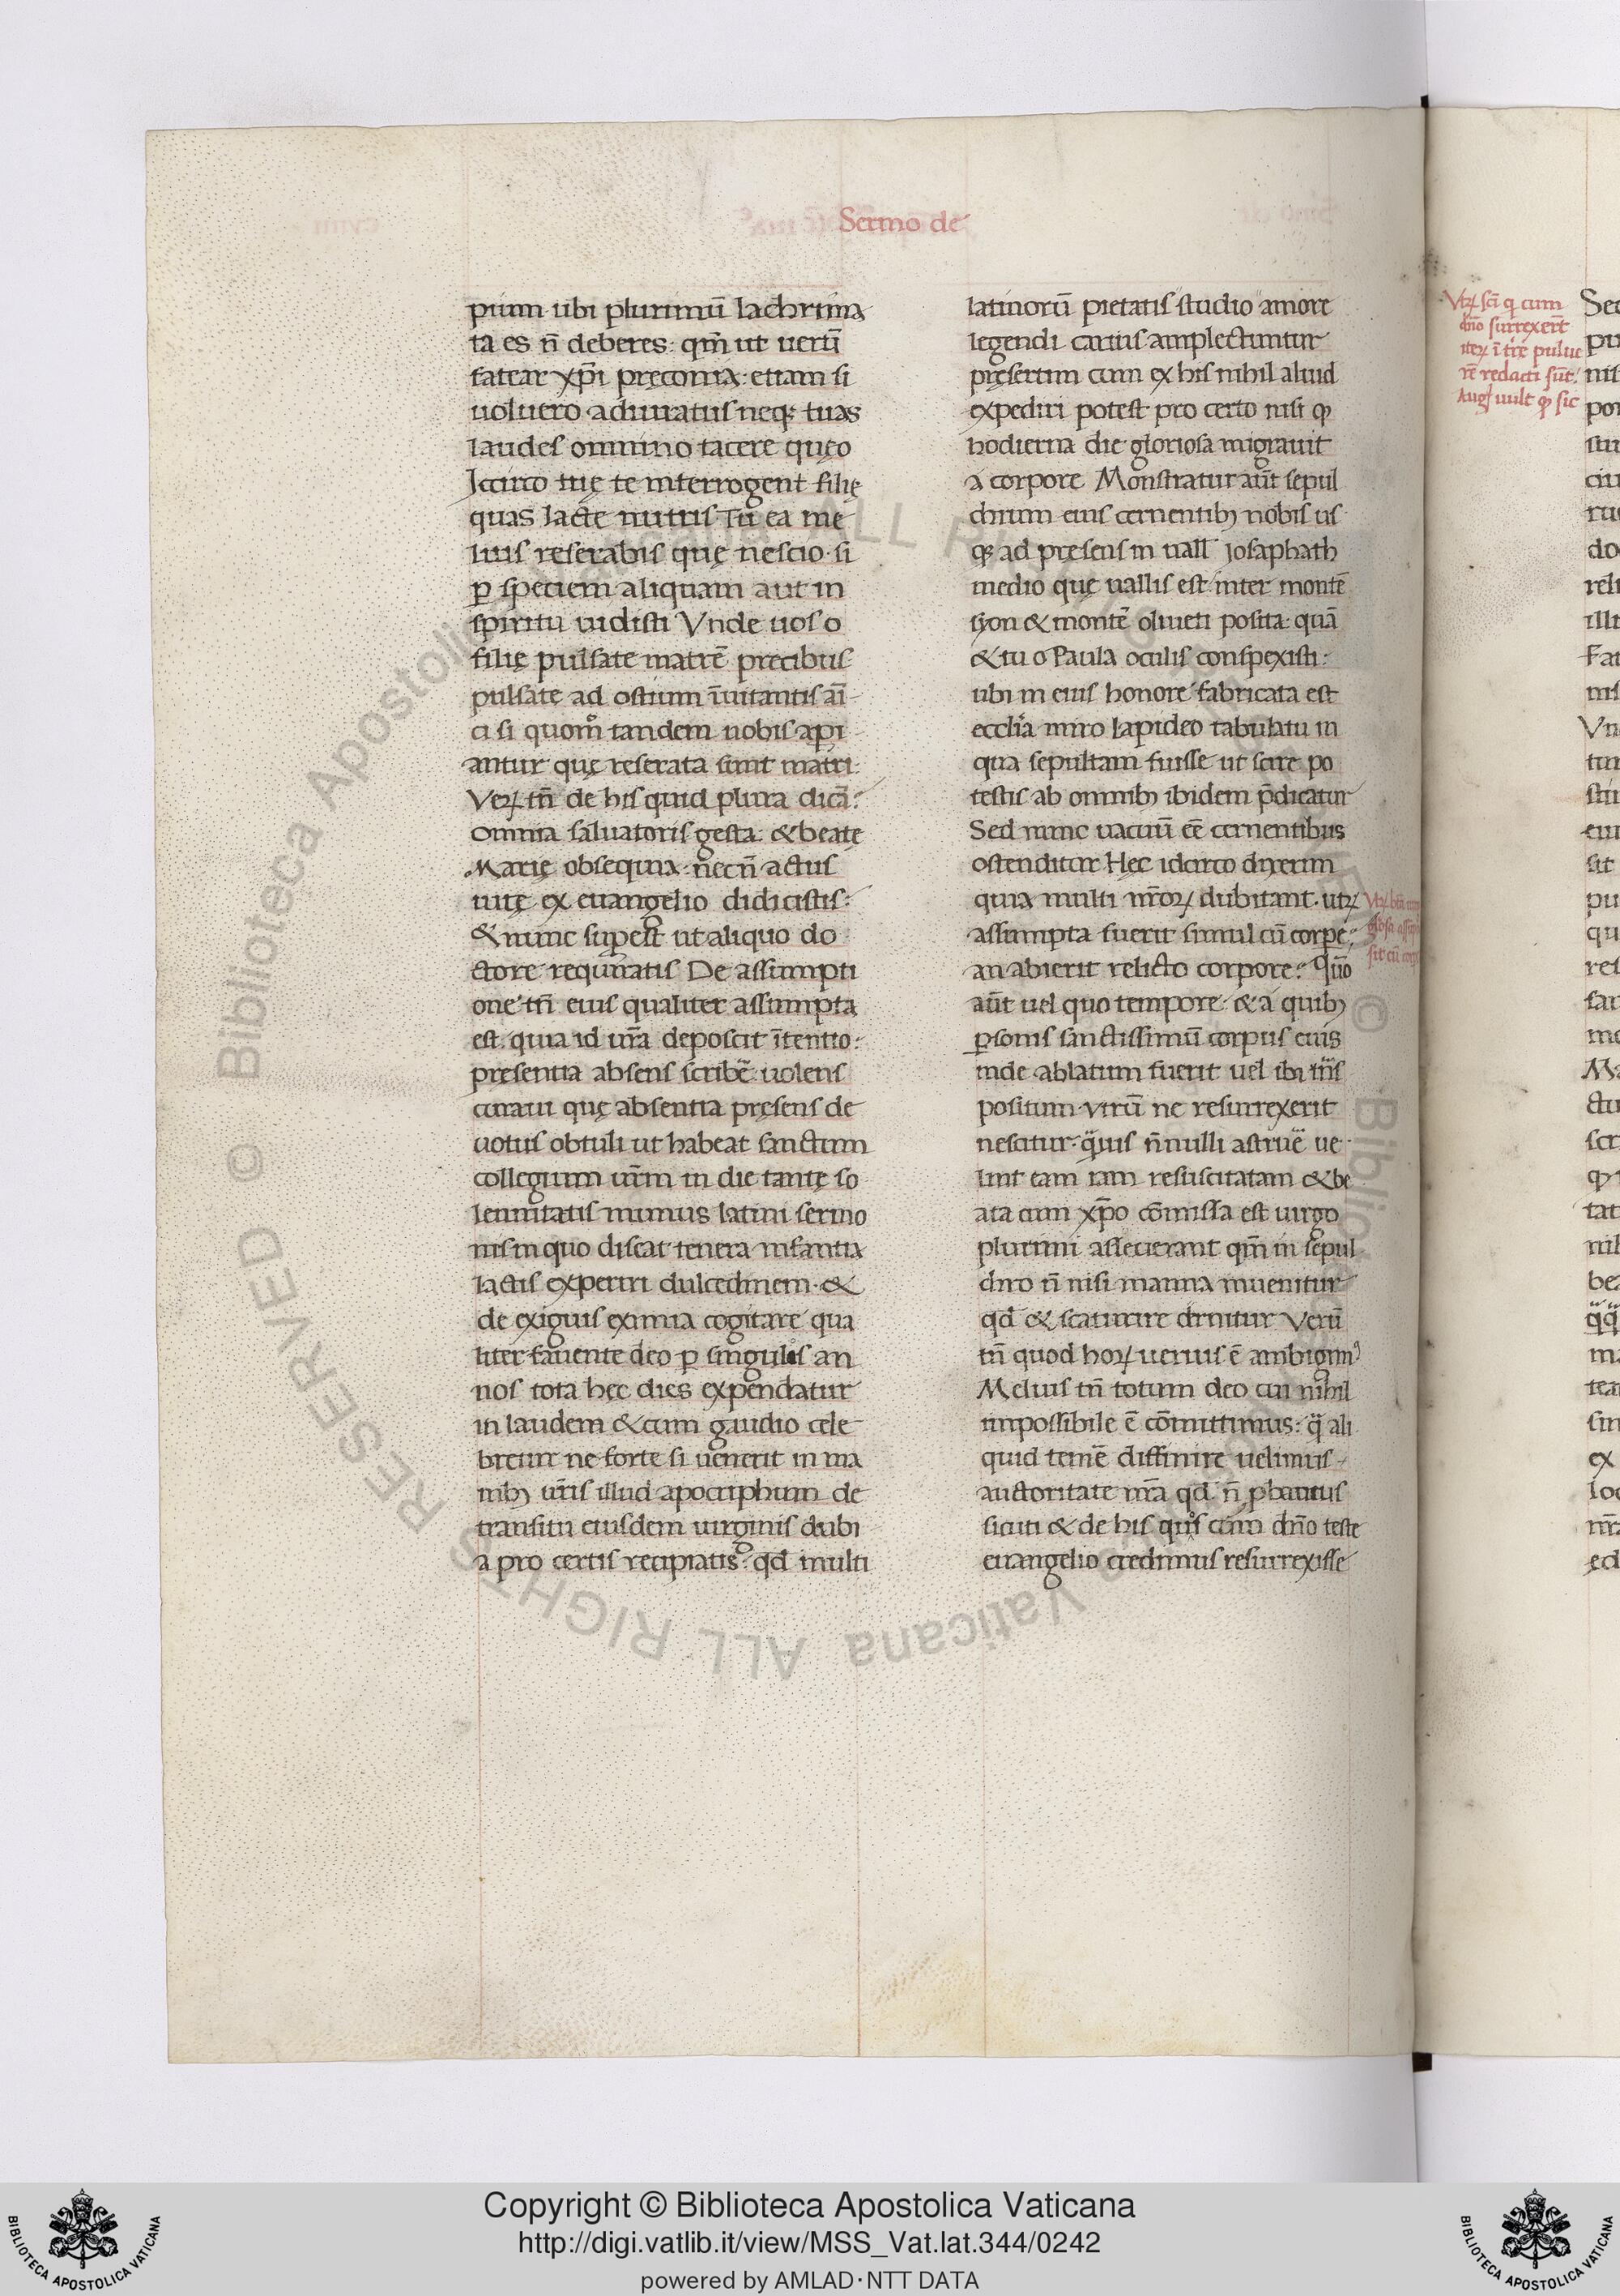 Sermo de
pium ubi plurimū lachrima
ta es n̄ deberes: qm̄ ut uerū
fatear xp̄i pręconia· etiam si
uoluero adiuratus neqꝫ tuas
laudes omnino tacere queo
Iccirco tuę te interrogent filię
quas lacte nutris Tu ea me
lius reserabis quę nescio· si
ꝑ speciem aliquam aut in
spiritu uidisti Vnde uos o
filię pulsate matrē precibus
pulsate ad ostium īuitantis ai
ci si quom̊ tandem uobis api
antur quę reserata sunt matri·
Veꝝ tn̄ de his quid plura dicā:
omnia saluatoris gesta· & beatę
Marię obsequia· necn̄ actus
uitę ex euangelio didicistis:
& nunc superest ut aliquo do
ctore requiratis De assumpti
one tn̄ eius qualiter assumpta
est· quia id ur̄a deposcit ītentio:
presentia absens scribē uolens
curaui quę absentia pręsens de
uotus obtuli ut habeat sanctum
collegium ur̄m in die tantę so
lennitatis munus latini sermo
nis in quo discat tenera infantia
lactis experiri dulcedinem· &
de exiguis eximia cogitare qua
liter fauente deo ꝑ singulos an
nos tota hęc dies expendatur
in laudem & cum gaudio cele
bretur ne forte si uenerit in ma
nibꝫ ur̄is illud apocriphum de
transitu eiusdem uirginis dubi
a pro certis recipiatis: qd̄ multi
latinorū pietatis studio amore
legendi carius amplectuntur
pręsertim cum ex his nihil aliud
expediri potest pro certo nisi ꝙ
hodierna die gloriosa migrauit
a corpore Monstratur aūt sepul
chrum eius cernentibꝫ nobis us
qꝫ ad presens in uall' Josaphath
medio quę uallis est inter montē
syon & montē oliueti posita: quā
& tu o Paula oculis conspexisti:
ubi in eius honore fabricata est
eccl̄ia miro lapideo tabulatu in
qua sepultam fuisse ut scire po
testis ab omnibꝫ ibidem p̄dicatur
Sed nunc uacuū eē cernentibus
ostenditur Hęc idcirco dixerim
quia multi nr̄oꝝ dubitant· utꝝ
assumpta fuerit simul cū corpe:
an abierit relicto corpore: Quō
aūt uel quo tempore· & a quibꝫ
ꝑsonis sanctissimū corpus eius
inde ablatum fuerit uel ibi
positum· utrū ne resurrexerit
nescitur· q̈uis n̄nulli astruē ue
lint eam iam resuscitatam & be
ata cum xp̄o
est uirgo
plurimi asseuerant qm̄ in sepul
chro n̄ nisi manna inuenitur
qd̄ & scaturire cernitur Verū
tn̄ quod hoꝝ uerius ē
Melius tn̄ totum deo cui nihil
impossibile ē cōmittimus: q̈ ali
quid temē diffinire uelimus
auctoritate nr̄a qd̄ n̄ ꝓbamus
sicuti & de his quos cum dn̄o teste
euangelio credimus resurrexisse
Vtꝝ
sit cū
Vtꝝ sc̄i q cum
dn̄o surrexert̄
iteꝝ ī tr̄e pulue
rē redacti sūt:
Aug' uult ꝙ sic
© Biblioteca Apostolica Vaticana ALL RIGHTS RESERVED
Copyright © Biblioteca Apostolica Vaticana
http://digi.vatlib.it/view/MSS_Vat.lat.344/0242
powered by AMLAD·NTT DATA
BIBLIOTECA APOSTOLICA VATICANA
BIBLIOTECA APOSTOLICA VATICANA